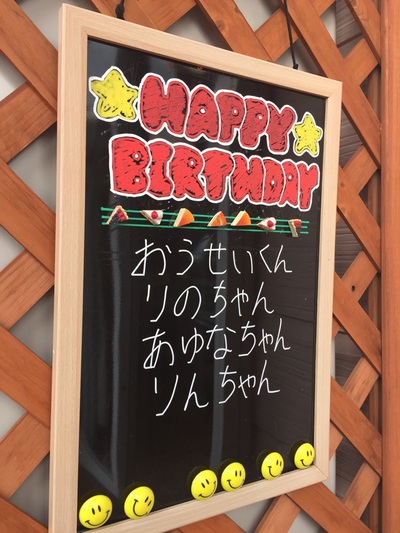 HAPPY
BIRTHDAY
おうせいくん
りのちゃん
あゆなちゃん
りんちゃん